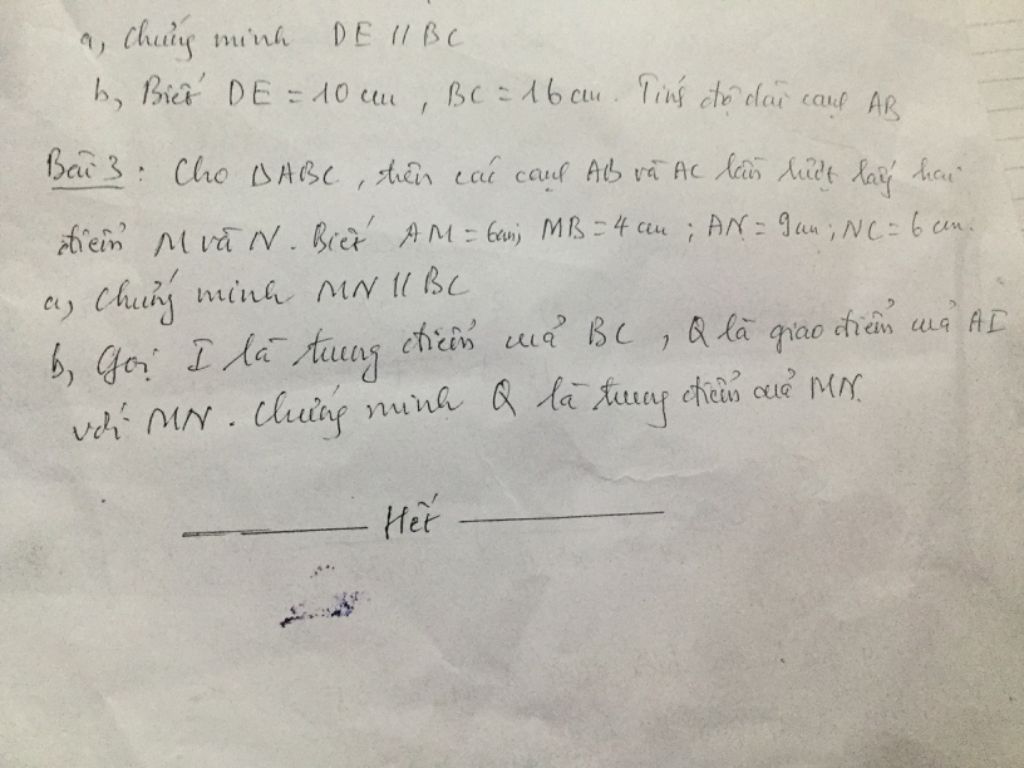 a, Chứng minh DE // BC
b, Biết DE = 10 cm, BC = 16 cm. Tính độ dài cạnh AB
Bài 3: Cho ΔABC, trên các cạnh AB và AC lần lượt lấy hai
điểm M và N. Biết AM = 6cm; MB = 4 cm; AN = 9cm; NC = 6 cm.
a, Chứng minh MN // BC
b, Gọi I là trung điểm của BC, Q là giao điểm của AI
với MN. Chứng minh Q là trung điểm của MN.
Hết